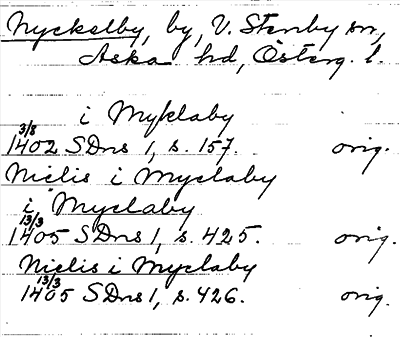 Nyckelby, by, V. Stenby sn,
Aska hd, Österg. l.
i Myklaby
1402 3/8 SDns 1, s. 157. orig.
Niclis i Myclaby
i Myclaby
1405 13/3 SDns 1, s. 425. orig.
Niclis i Myclaby
1405 13/3 SDns 1, s. 426. orig.